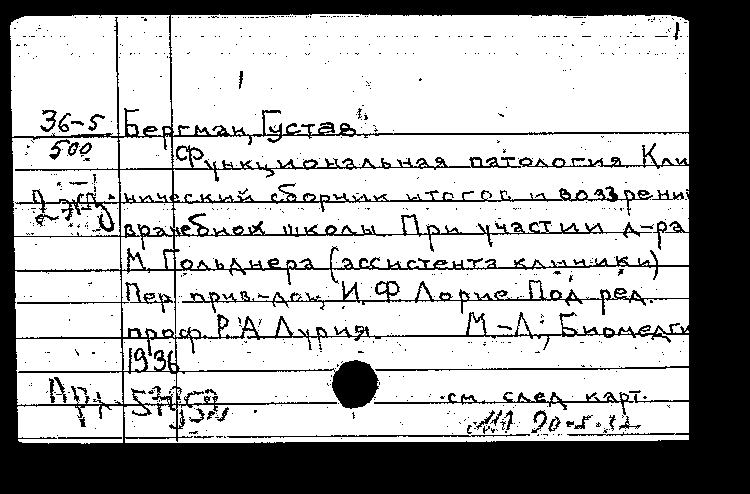 36-5 Бергман, Густав.
500 Функциональная патология Кли
2 экз нический сборник итогов и воззрени
врачебной школы. При участии д-ра
М. Гольднера (ассистента клиники)
Пер. прив.-доц. И. Ф. Лорие. Под ред.
проф. Р. А. Лурия. М.-Л., Биомедги
1936.
Арх.
см. след. карт.